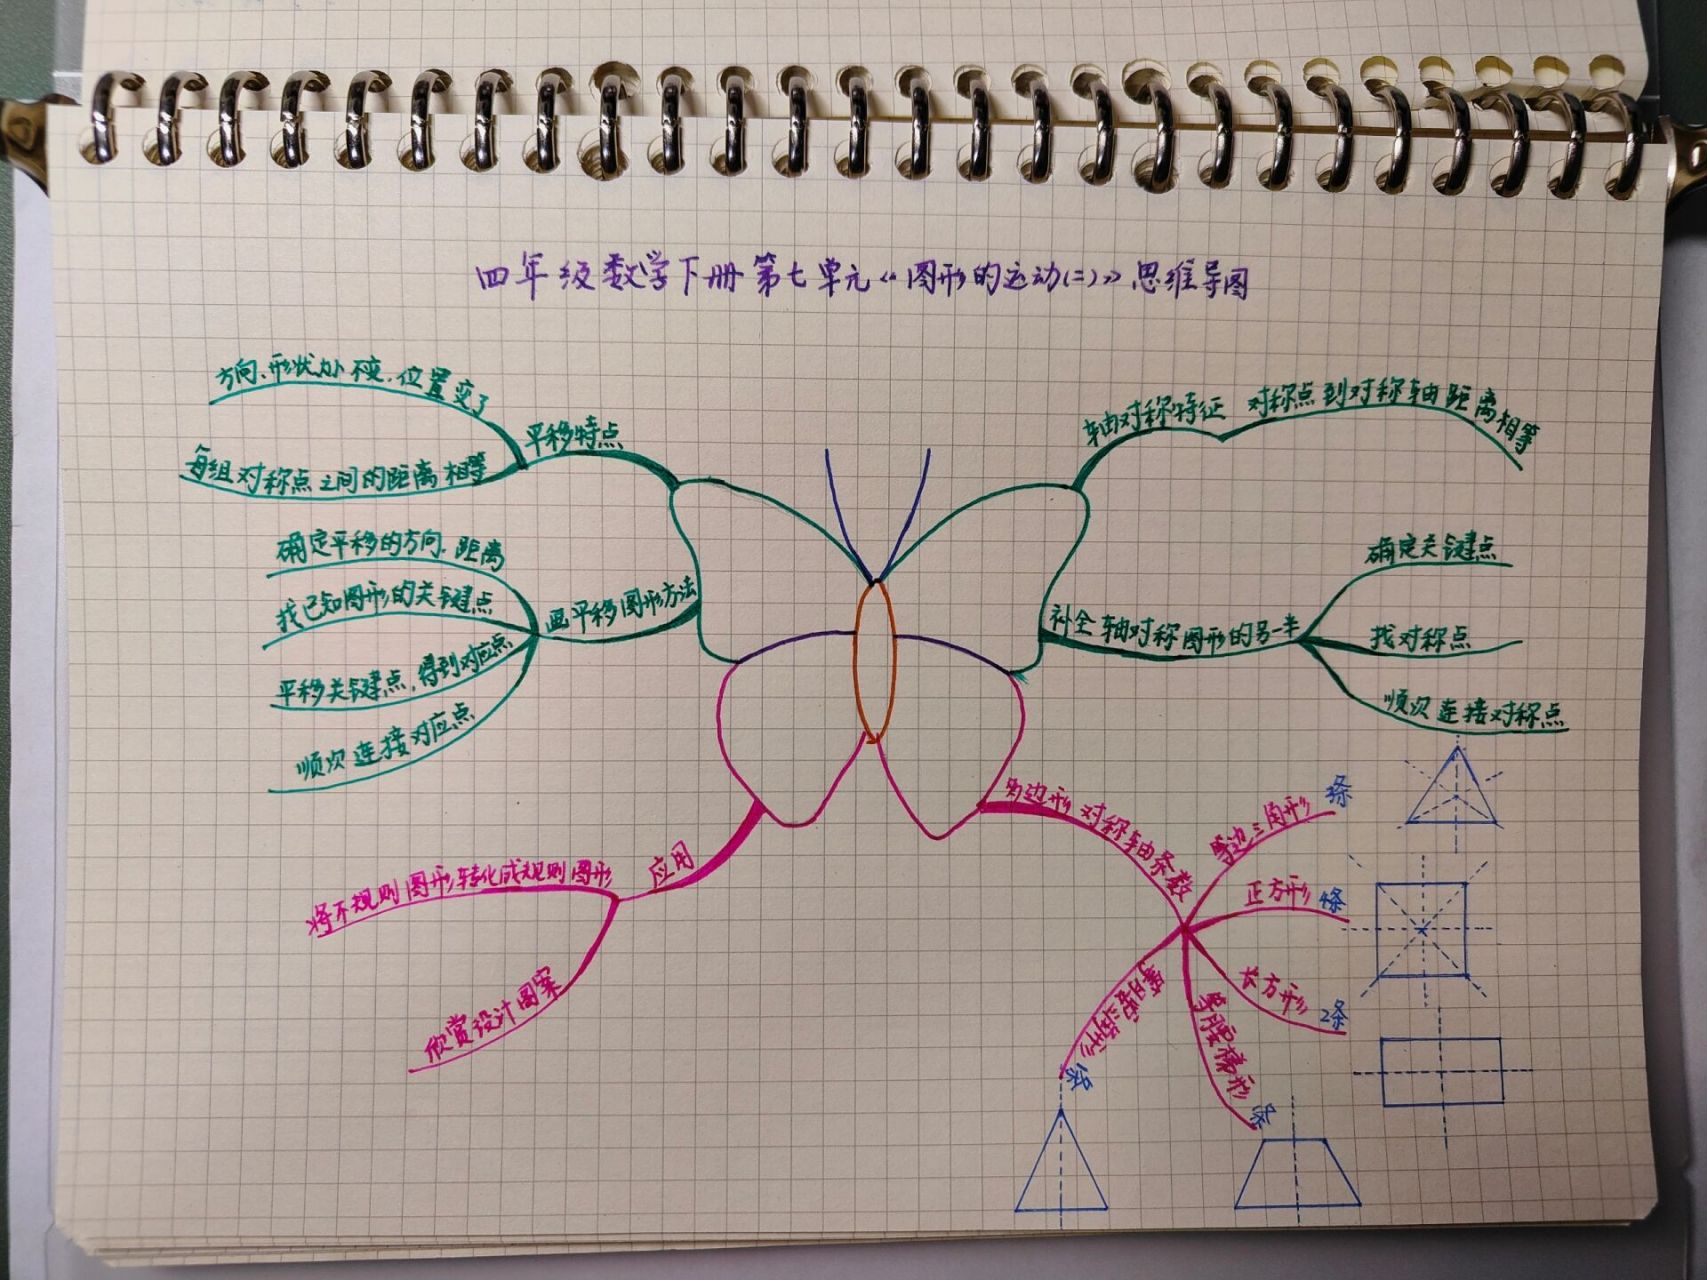 四年级数学下册第七单元《图形的运动(二)》思维导图
方向、形状大小不变,位置变了
平移特点
每组对称点之间的距离相等
确定平移的方向、距离
找已知图形的关键点
画平移图形方法
平移关键点,得到对应点
顺次连接对应点
轴对称特征
对称点到对称轴距离相等
确定关键点
补全轴对称图形的另一半
找对称点
顺次连接对称点
应用
将不规则图形转化成规则图形
欣赏设计图案
多边形对称轴条数
等边三角形 3条
正方形 4条
长方形 2条
等腰梯形 1条
等腰三角形 1条